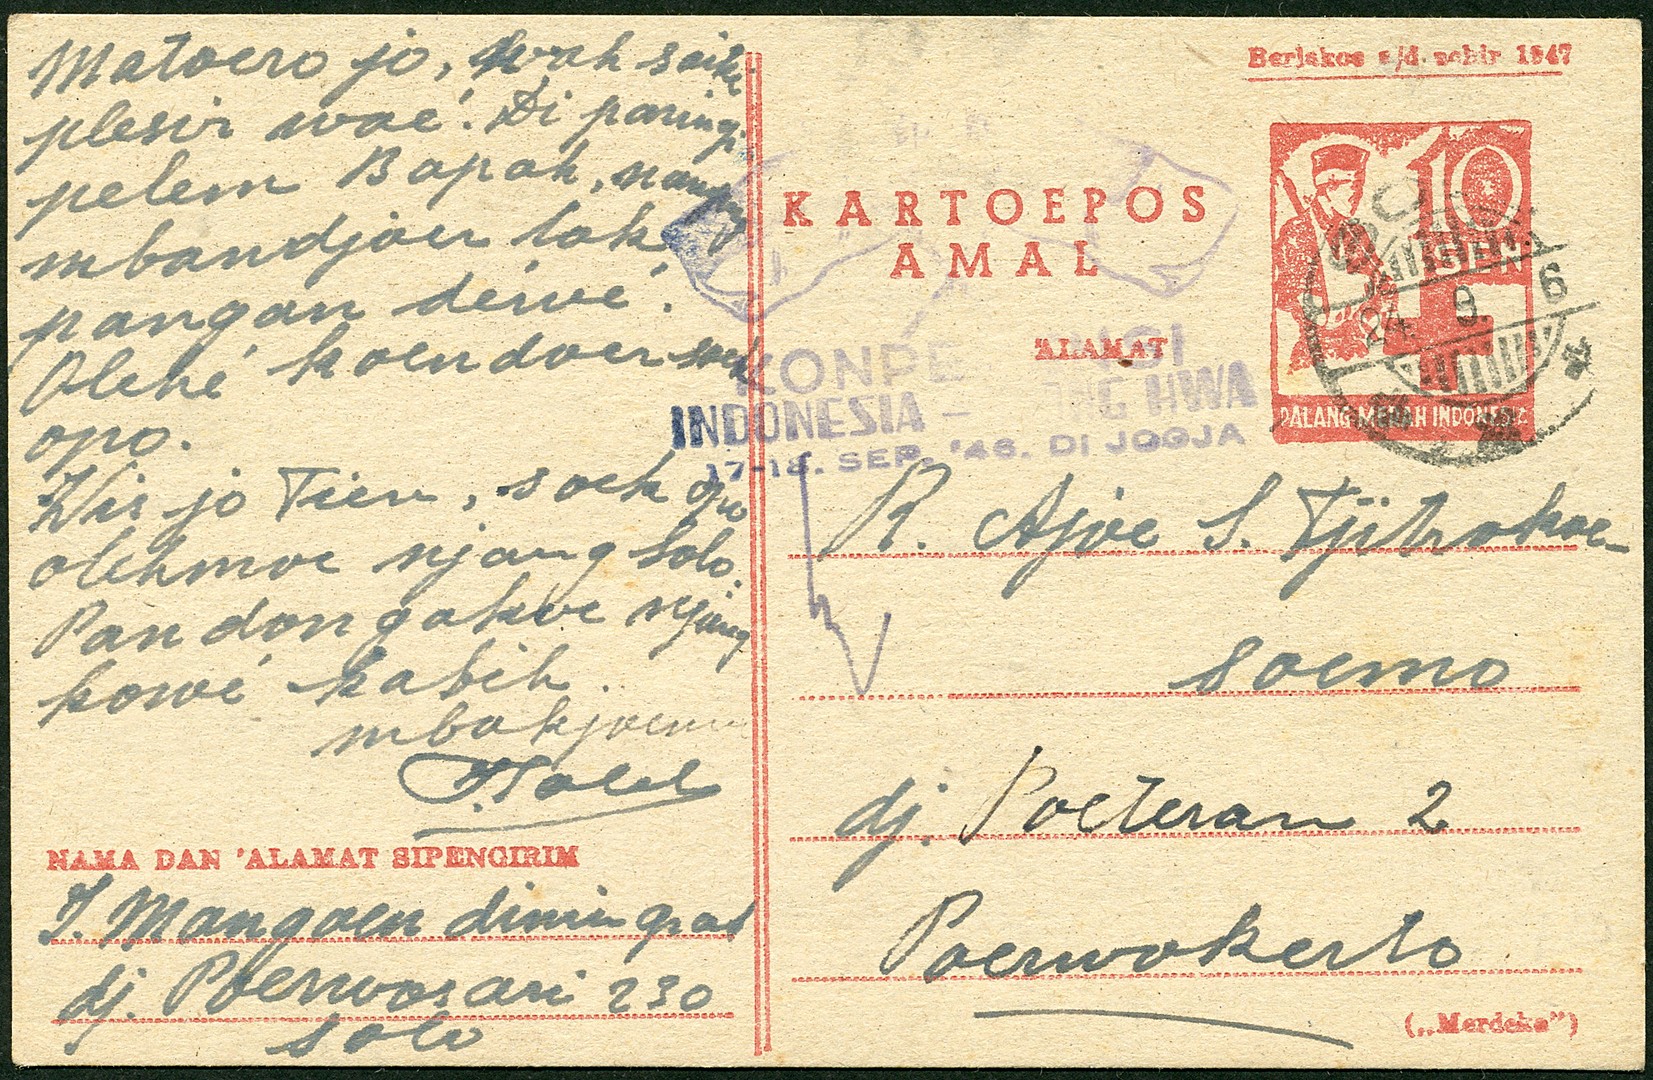 Matoero jo, wah saiki
plesir waé! Di paringi
pelem Bapak, nangi
mbandjoer tak
pangan déwé.
Olehé koendoer soek
opo.
Wis jo Tien, soek opo
olehmoe njang Solo.
Pandongakoe njang
kowé kabih.
mbakjoemu
NAMA DAN 'ALAMAT SIPENGIRIM
J. Mangoendiningrat
dj. Poerwosari 230
Solo
Berlakoe s/d. achir 1947
KARTOEPOS
AMAL
10
SEN
PALANG MERAH INDONESIA
24. 9. 6
'ALAMAT
KONPE NSI
INDONESIA - HWA
17-18. SEP. '46. DI JOGJA
R. Ajoe S. Tjitrokoe-
soemo
dj. Poeteran 2
Poerwokerto
("Merdeka")